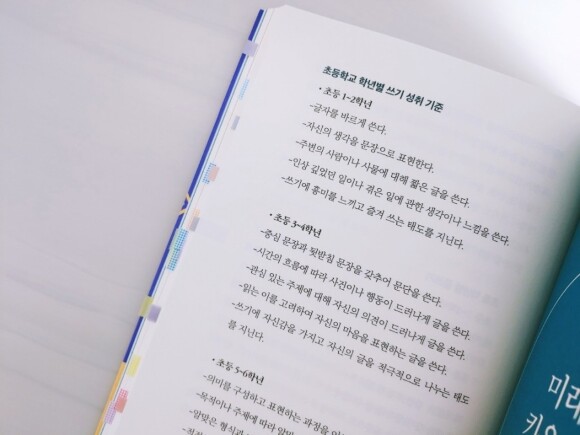 초등학교 학년별 쓰기 성취 기준
• 초등 1~2학년
-글자를 바르게 쓴다.
-자신의 생각을 문장으로 표현한다.
-주변의 사람이나 사물에 대해 짧은 글을 쓴다.
-인상 깊었던 일이나 겪은 일에 관한 생각이나 느낌을 쓴다.
-쓰기에 흥미를 느끼고 즐겨 쓰는 태도를 지닌다.
• 초등 3~4학년
-중심 문장과 뒷받침 문장을 갖추어 문단을 쓴다.
-시간의 흐름에 따라 사건이나 행동이 드러나게 글을 쓴다.
-관심 있는 주제에 대해 자신의 의견이 드러나게 글을 쓴다.
-읽는 이를 고려하여 자신의 마음을 표현하는 글을 쓴다.
-쓰기에 자신감을 가지고 자신의 글을 적극적으로 나누는 태도
를 지닌다.
• 초등 5~6학년
-의미를 구성하고 표현하는 과정을
-목적이나 주제에 따라
-알맞은 형식과
미래